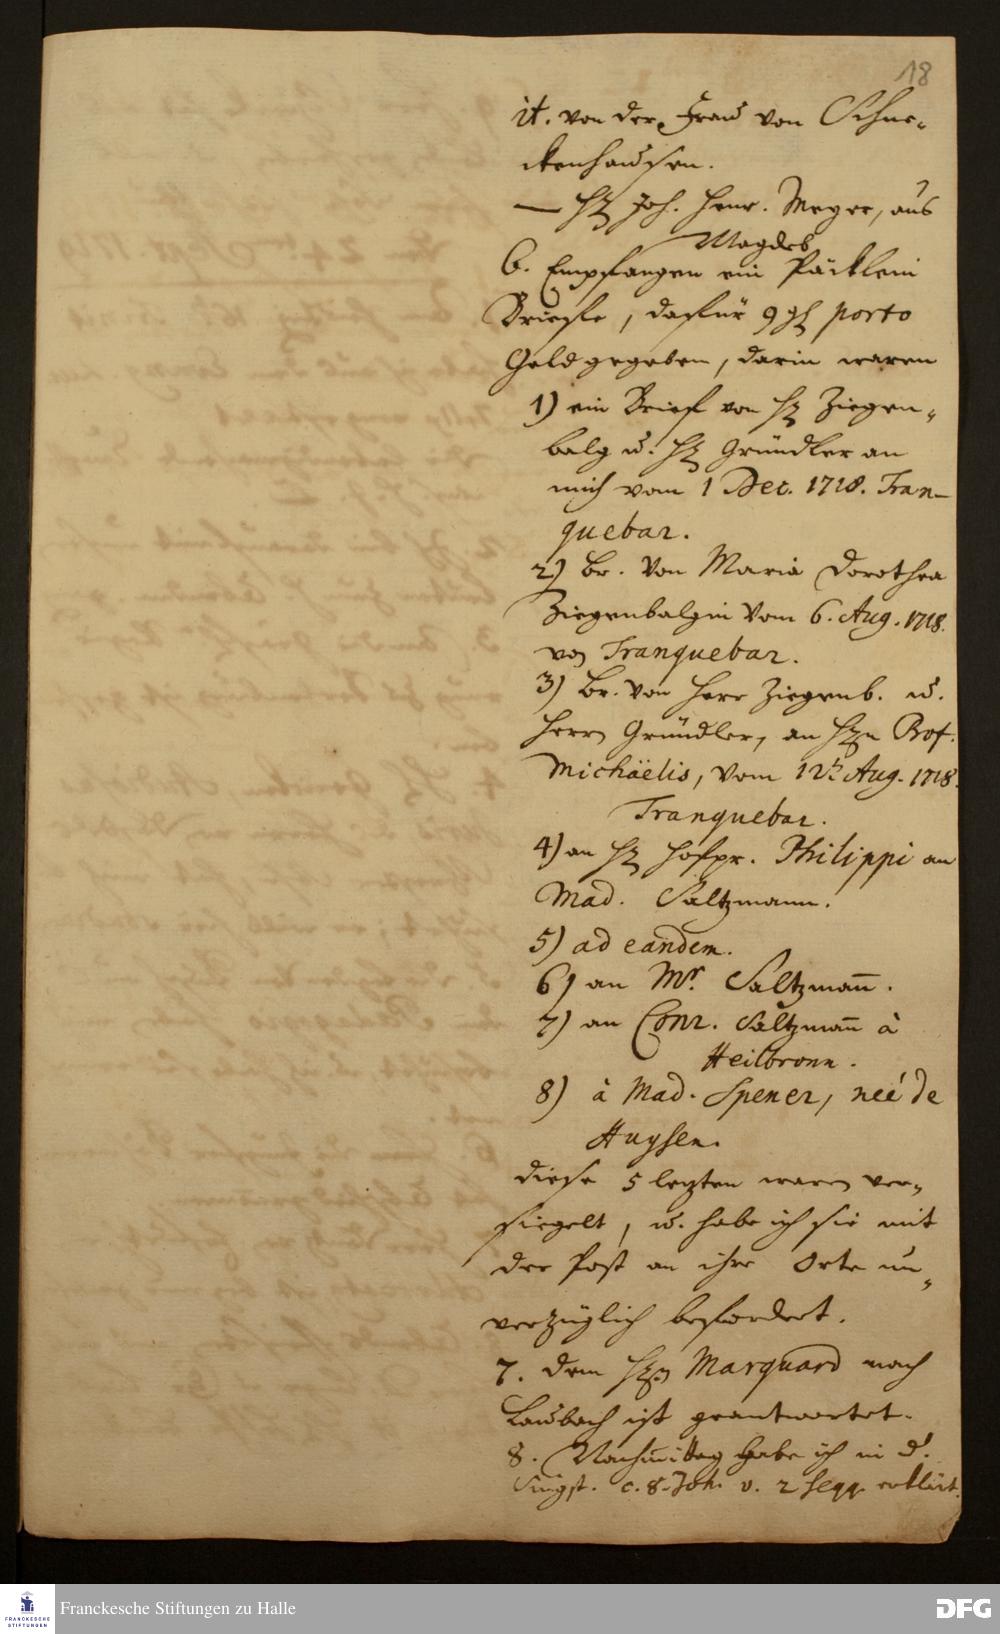 18
it. von der Frau von Schne-
ckenhausen.
— H Joh. Henr. Meyer, aus
Magdeb
6. Empfangen ein Päcklein
Briefe, dafür 9 gl porto
Geld gegeben, darin waren
1) ein Brief von H Ziegen-
balg u. H Gründler an
mich vom 1 Dec. 1718. Tran-
quebar.
2) Br. von Maria Dorothea
Ziegenbalgin vom 6. Aug. 1718.
von Tranquebar.
3) Br. von Herr Ziegenb. u.
Herrn Gründler, an Hn Prof.
Michäelis, vom 12t Aug. 1718.
Tranquebar.
4) an H Hofpr. Philippi an
Mad. Saltzmann.
5) ad eandem.
6) an Mr. Saltzmann̄.
7) an Conr. Saltzmann̄ à
Heilbronn.
8) à Mad. Spener, neé de
Huysen.
diese 5 letzten waren ver-
siegelt, u. habe ich sie mit
der Post an ihre Orte un-
verzüglich befordert.
7. dem Hn Marquard nach
Laubach ist geantwortet.
8. Nachmittag habe ich in d.
Singst. c. 8. Joh. v. 2 seqq. erklärt.
Franckesche Stiftungen zu Halle
FRANCKESCHE
STIFTUNGEN
DFG